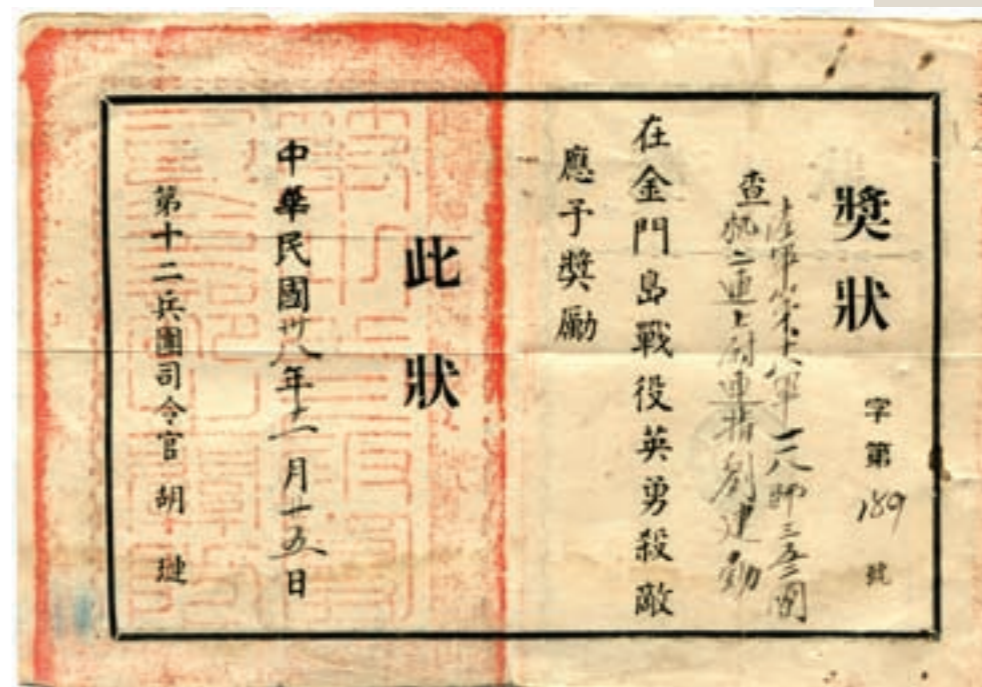 獎狀
字第189號
陸軍第十八軍一一八師三五二團
查機二連上尉連指劉建勳
在金門島戰役英勇殺敵
應予獎勵
此狀
中華民國卅八年十二月廿五日
第十二兵團司令官 胡璉